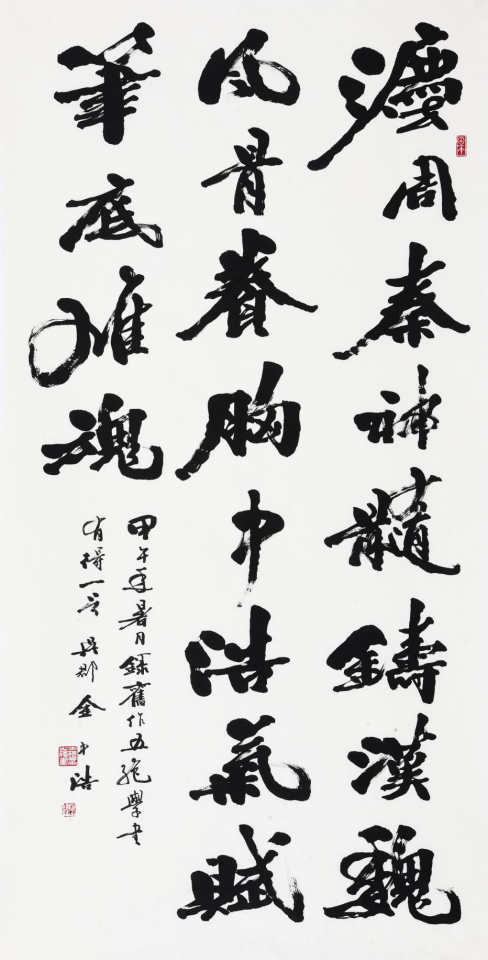 灋周秦神髓鑄漢魏
風骨養胸中浩氣賦
筆底雄魂
甲午年暑月錄舊作五絕學書
有得一首 吳郡 金才浩